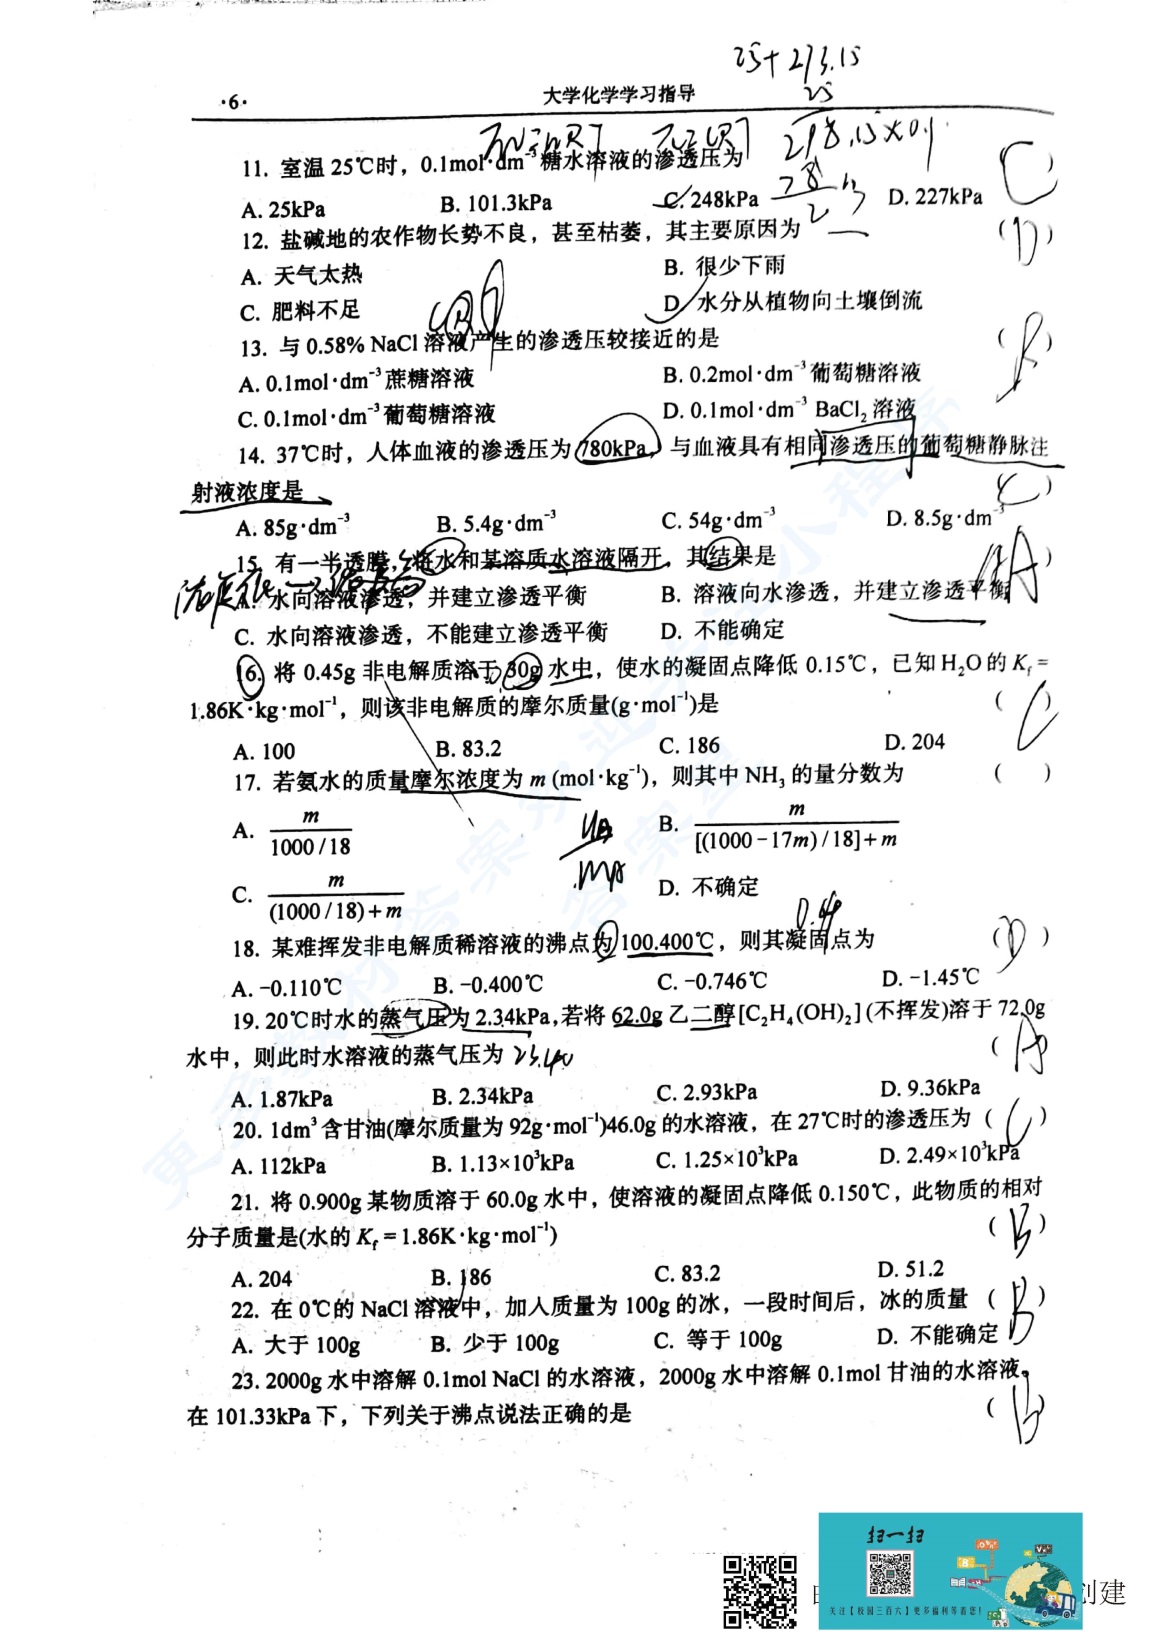 25+273.15
·6·
大学化学学习指导
25
298.15×0.1
11. 室温 25℃时，0.1mol·dm⁻³糖水溶液的渗透压为
C
A. 25kPa
B. 101.3kPa
C. 248kPa
D. 227kPa
12. 盐碱地的农作物长势不良，甚至枯萎，其主要原因为
(D)
A. 天气太热
B. 很少下雨
C. 肥料不足
D. 水分从植物向土壤倒流
13. 与 0.58% NaCl 溶液产生的渗透压较接近的是
( )
A. 0.1mol·dm⁻³蔗糖溶液
B. 0.2mol·dm⁻³葡萄糖溶液
C. 0.1mol·dm⁻³葡萄糖溶液
D. 0.1mol·dm⁻³ BaCl₂ 溶液
14. 37℃时，人体血液的渗透压为 780kPa，与血液具有相同渗透压的葡萄糖静脉注
射液浓度是
(C)
A. 85g·dm⁻³
B. 5.4g·dm⁻³
C. 54g·dm⁻³
D. 8.5g·dm⁻³
15. 有一半透膜，将水和某溶质水溶液隔开，其结果是
(A)
A. 水向溶液渗透，并建立渗透平衡
B. 溶液向水渗透，并建立渗透平衡
C. 水向溶液渗透，不能建立渗透平衡
D. 不能确定
16. 将 0.45g 非电解质溶于 30g 水中，使水的凝固点降低 0.15℃，已知 H₂O 的 K_f =
1.86K·kg·mol⁻¹，则该非电解质的摩尔质量(g·mol⁻¹)是
(C)
A. 100
B. 83.2
C. 186
D. 204
17. 若氨水的质量摩尔浓度为 m (mol·kg⁻¹)，则其中 NH₃ 的量分数为
( )
A. m
1000 / 18
B. m
[(1000 − 17m) / 18] + m
C. m
(1000 / 18) + m
D. 不确定
18. 某难挥发非电解质稀溶液的沸点为 100.400℃，则其凝固点为
(D)
A. −0.110℃
B. −0.400℃
C. −0.746℃
D. −1.45℃
19. 20℃时水的蒸气压为 2.34kPa,若将 62.0g 乙二醇[C₂H₄(OH)₂](不挥发)溶于 72.0g
水中，则此时水溶液的蒸气压为
(A)
A. 1.87kPa
B. 2.34kPa
C. 2.93kPa
D. 9.36kPa
20. 1dm³含甘油(摩尔质量为 92g·mol⁻¹)46.0g 的水溶液，在 27℃时的渗透压为 (C)
A. 112kPa
B. 1.13×10³kPa
C. 1.25×10³kPa
D. 2.49×10³kPa
21. 将 0.900g 某物质溶于 60.0g 水中，使溶液的凝固点降低 0.150℃，此物质的相对
分子质量是(水的 K_f = 1.86K·kg·mol⁻¹)
(B)
A. 204
B. 186
C. 83.2
D. 51.2
22. 在 0℃的 NaCl 溶液中，加入质量为 100g 的冰，一段时间后，冰的质量 (B)
A. 大于 100g
B. 少于 100g
C. 等于 100g
D. 不能确定
23. 2000g 水中溶解 0.1mol NaCl 的水溶液，2000g 水中溶解 0.1mol 甘油的水溶液，
在 101.33kPa 下，下列关于沸点说法正确的是
(B)
扫一扫
关注【校园三百六】更多福利等着您!
创建